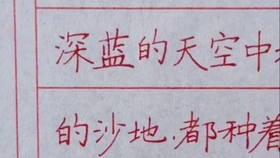 深蓝的天空中
的沙地.都种着